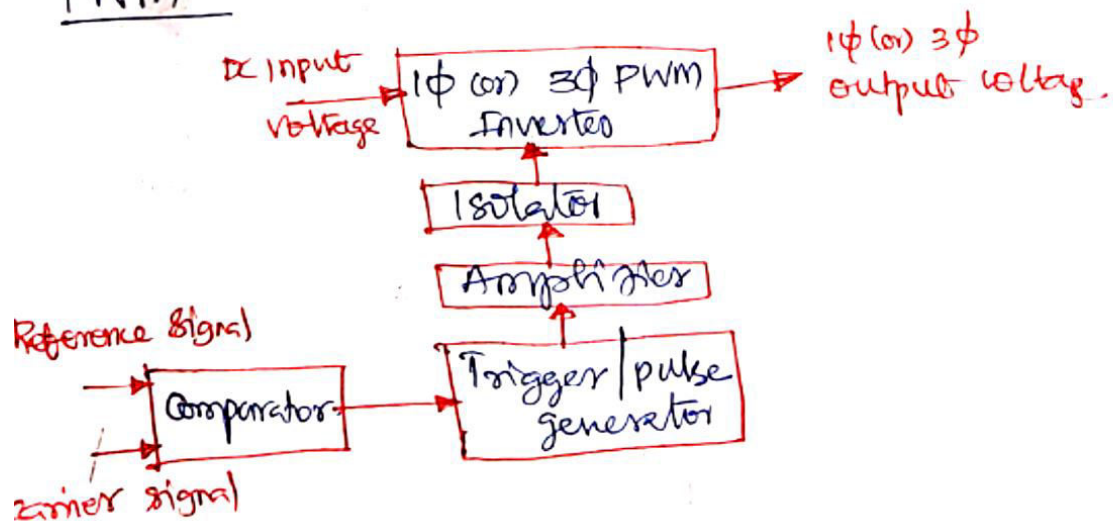 PWM
DC Input
voltage
1ϕ (or) 3ϕ PWM
Inverter
1ϕ (or) 3ϕ
output voltag.
Isolator
Amplifier
Reference Signal
Comparator
Trigger/pulse
generator
carrier signal